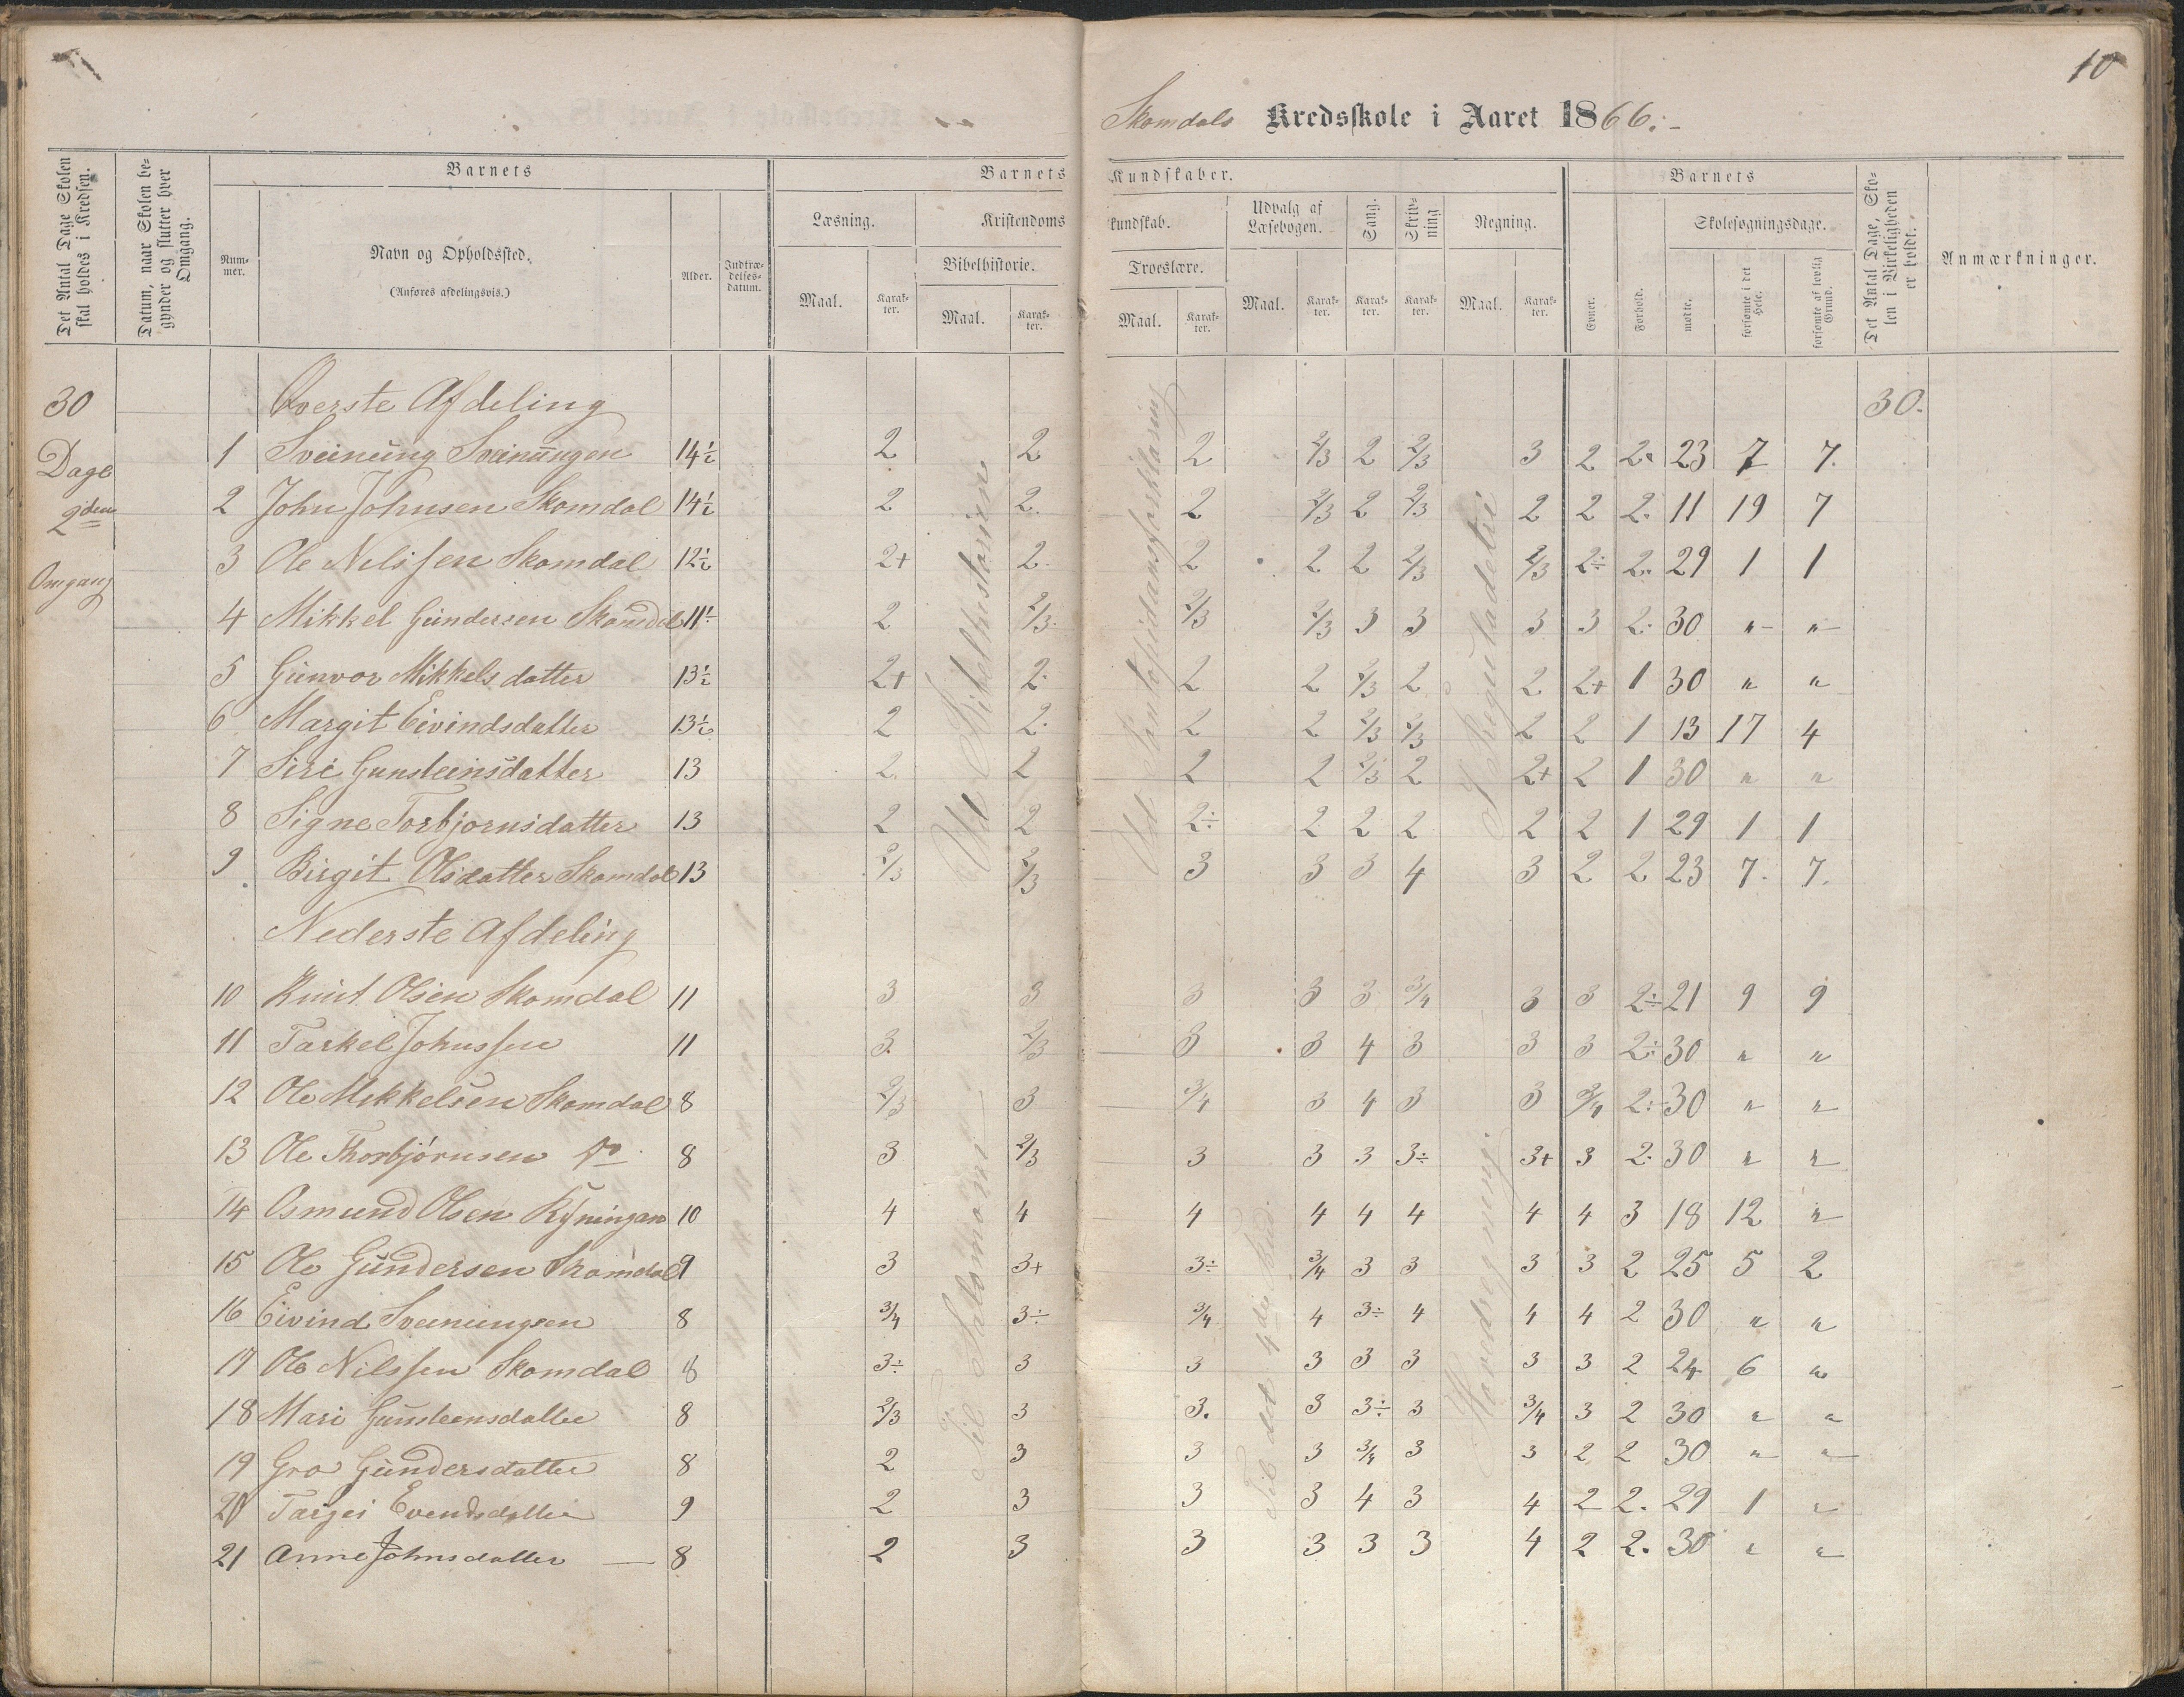 10
Skomdals Kredsskole i Aaret 1866.-
Det Antal Dage Skolen skal holdes i Kredsen.
Datum, naar Skolen begynder og slutter hver Omgang.
Barnets
Barnets Kundskaber.
Barnets
Det Antal Dage, Skolen i Virkeligheden er holdt.
Anmærkninger.
Nummer.
Navn og Opholdssted.
(Anføres afdelingsvis.)
Alder.
Indtrædelsesdatum.
Læsning.
Kristendomskundskab.
Udvalg af Læsebogen.
Sang.
Skrivning
Regning.
Skolesøgningsdage.
Bibelhistorie.
Troeslære.
Maal. Karakter. Maal. Karakter. Maal. Karakter. Maal. Karakter. Karakter. Karakter. Maal. Karakter. Evner. Forhold. mødte. forsømte i det Hele. forsømte af lovlig Grund.
30 Dage 2den Omgang
Øverste Afdeling 30.
1 Sveinung Sveinungen 14½ 2 2 2 2/3 2 2/3 3 2 2. 23 7 7.
2 John Johnsen Skomdal 14½ 2 2. 2 2/3 2 2/3 2 2 2. 11 19 7
3 Ole Nilssen Skomdal 12½ 2+ 2. 2 2 2 2/3 2/3 2÷ 2. 29 1 1
4 Mikkel Gundersen Skomdal 11½ 2 2/3. 2/3 2/3 3 3 3 3 2. 30 " "
5 Gunvor Mikkelsdatter 13½ 2+ 2. 2 2 2/3 2 2 2+ 1 30 " "
6 Margit Eivindsdatter 13½ 2 2. 2 2 2/3 2/3 2 2 1 13 17 4
7 Siri Gunsteinsdatter 13 2. 2 2 2 2/3 2 2+ 2 1 30 " "
8 Signe Torbjornsdatter 13 2 2 2÷ 2 2 2 2 2 1 29 1 1
9 Birgit Olsdatter Skomdal 13 2/3 2/3 3 3 3 4 3 2 2 23 7. 7.
Nederste Afdeling
10 Knut Olsen Skomdal 11 3 3 3 3 3 3/4 3 3 2÷ 21 9 9
11 Tarkel Johnssen 11 3. 2/3 3 3 4 3 3 3 2÷ 30 " "
12 Ole Mikkelsen Skomdal 8 2/3 3 3/4 3 4 3 3 3/4 2÷ 30 " "
13 Ole Thorbjørnsen do 8 3 2/3 3 3 3 3÷ 3+ 3 2. 30 " "
14 Osmund Olsen Ryningen 10 4 4 4 4 4 4 4 4 3 18 12 "
15 Ole Gundersen Skomdal 9 3 3+ 3÷ 3/4 3 3 3 3 2 25 5 2
16 Eivind Sveinungsen 8 3/4 3÷ 3/4 4 3÷ 4 4 4 2 30 " "
17 Ole Nilssen Skomdal 8 3÷ 3 3 3 3 3 3 3 2 24 6 "
18 Mari Gunsteensdatter 8 2/3 3 3. 3 3÷ 3 3/4 3 2 30 " "
19 Gro Gundersdatter 8 2 3 3 3 3/4 3 3 2 2 30 " "
20 Targei Evendsdatter 9 2 3 3 3 4 3 4 2 2. 29 1 "
21 Anne Johnsdatter 8 2 3 3 3 3 3 4 2 2. 30 " "
Ud Bibelhistorien
Ud Pontoppidans forklaring
I Reguladetri
Til Salomon
Til det 4de Bud
Hovedregning